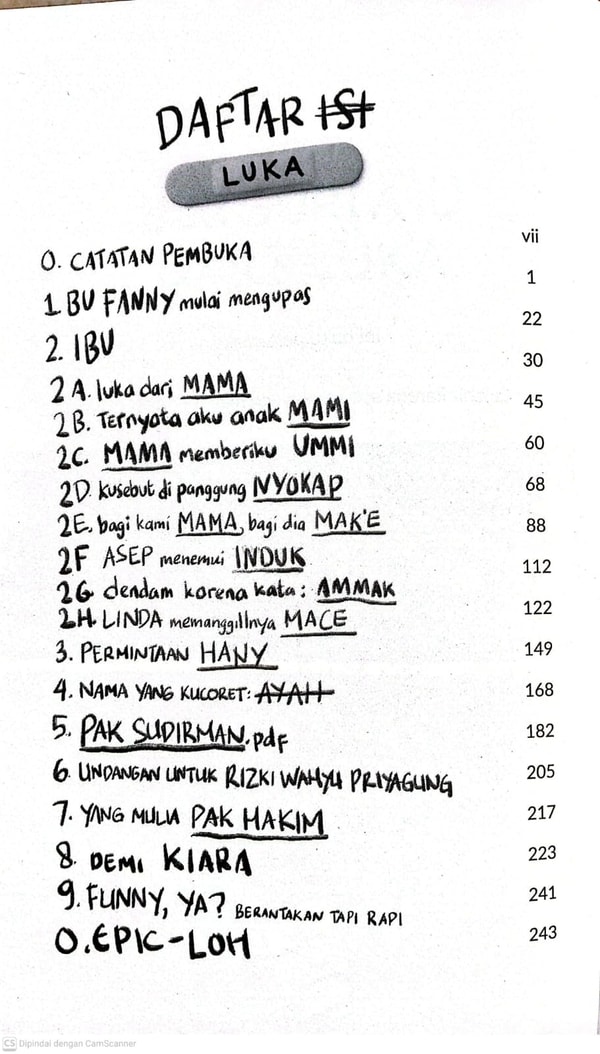 DAFTAR ISI
LUKA
0. CATATAN PEMBUKA vii
1 BU FANNY mulai mengupas 1
2. IBU 22
2A. luka dari MAMA 30
2B. Ternyata aku anak MAMI 45
2C. MAMA memberiku UMMI 60
2D. Kusebut di panggung NYOKAP 68
2E. bagi kami MAMA, bagi dia MAK'E 88
2F ASEP menemui INDUK 112
2G dendam karena kata: AMMAK 122
2H. LINDA memanggilnya MACE
3. PERMINTAAN HANY 149
4. NAMA YANG KUCORET: AYAH 168
5. PAK SUDIRMAN.pdf 182
6. UNDANGAN UNTUK RIZKI WAHYU PRIYAGUNG 205
7. YANG MULIA PAK HAKIM 217
8. DEMI KIARA 223
9. FUNNY, YA? BERANTAKAN TAPI RAPI 241
0. EPIC-LOH 243
CS Dipindai dengan CamScanner